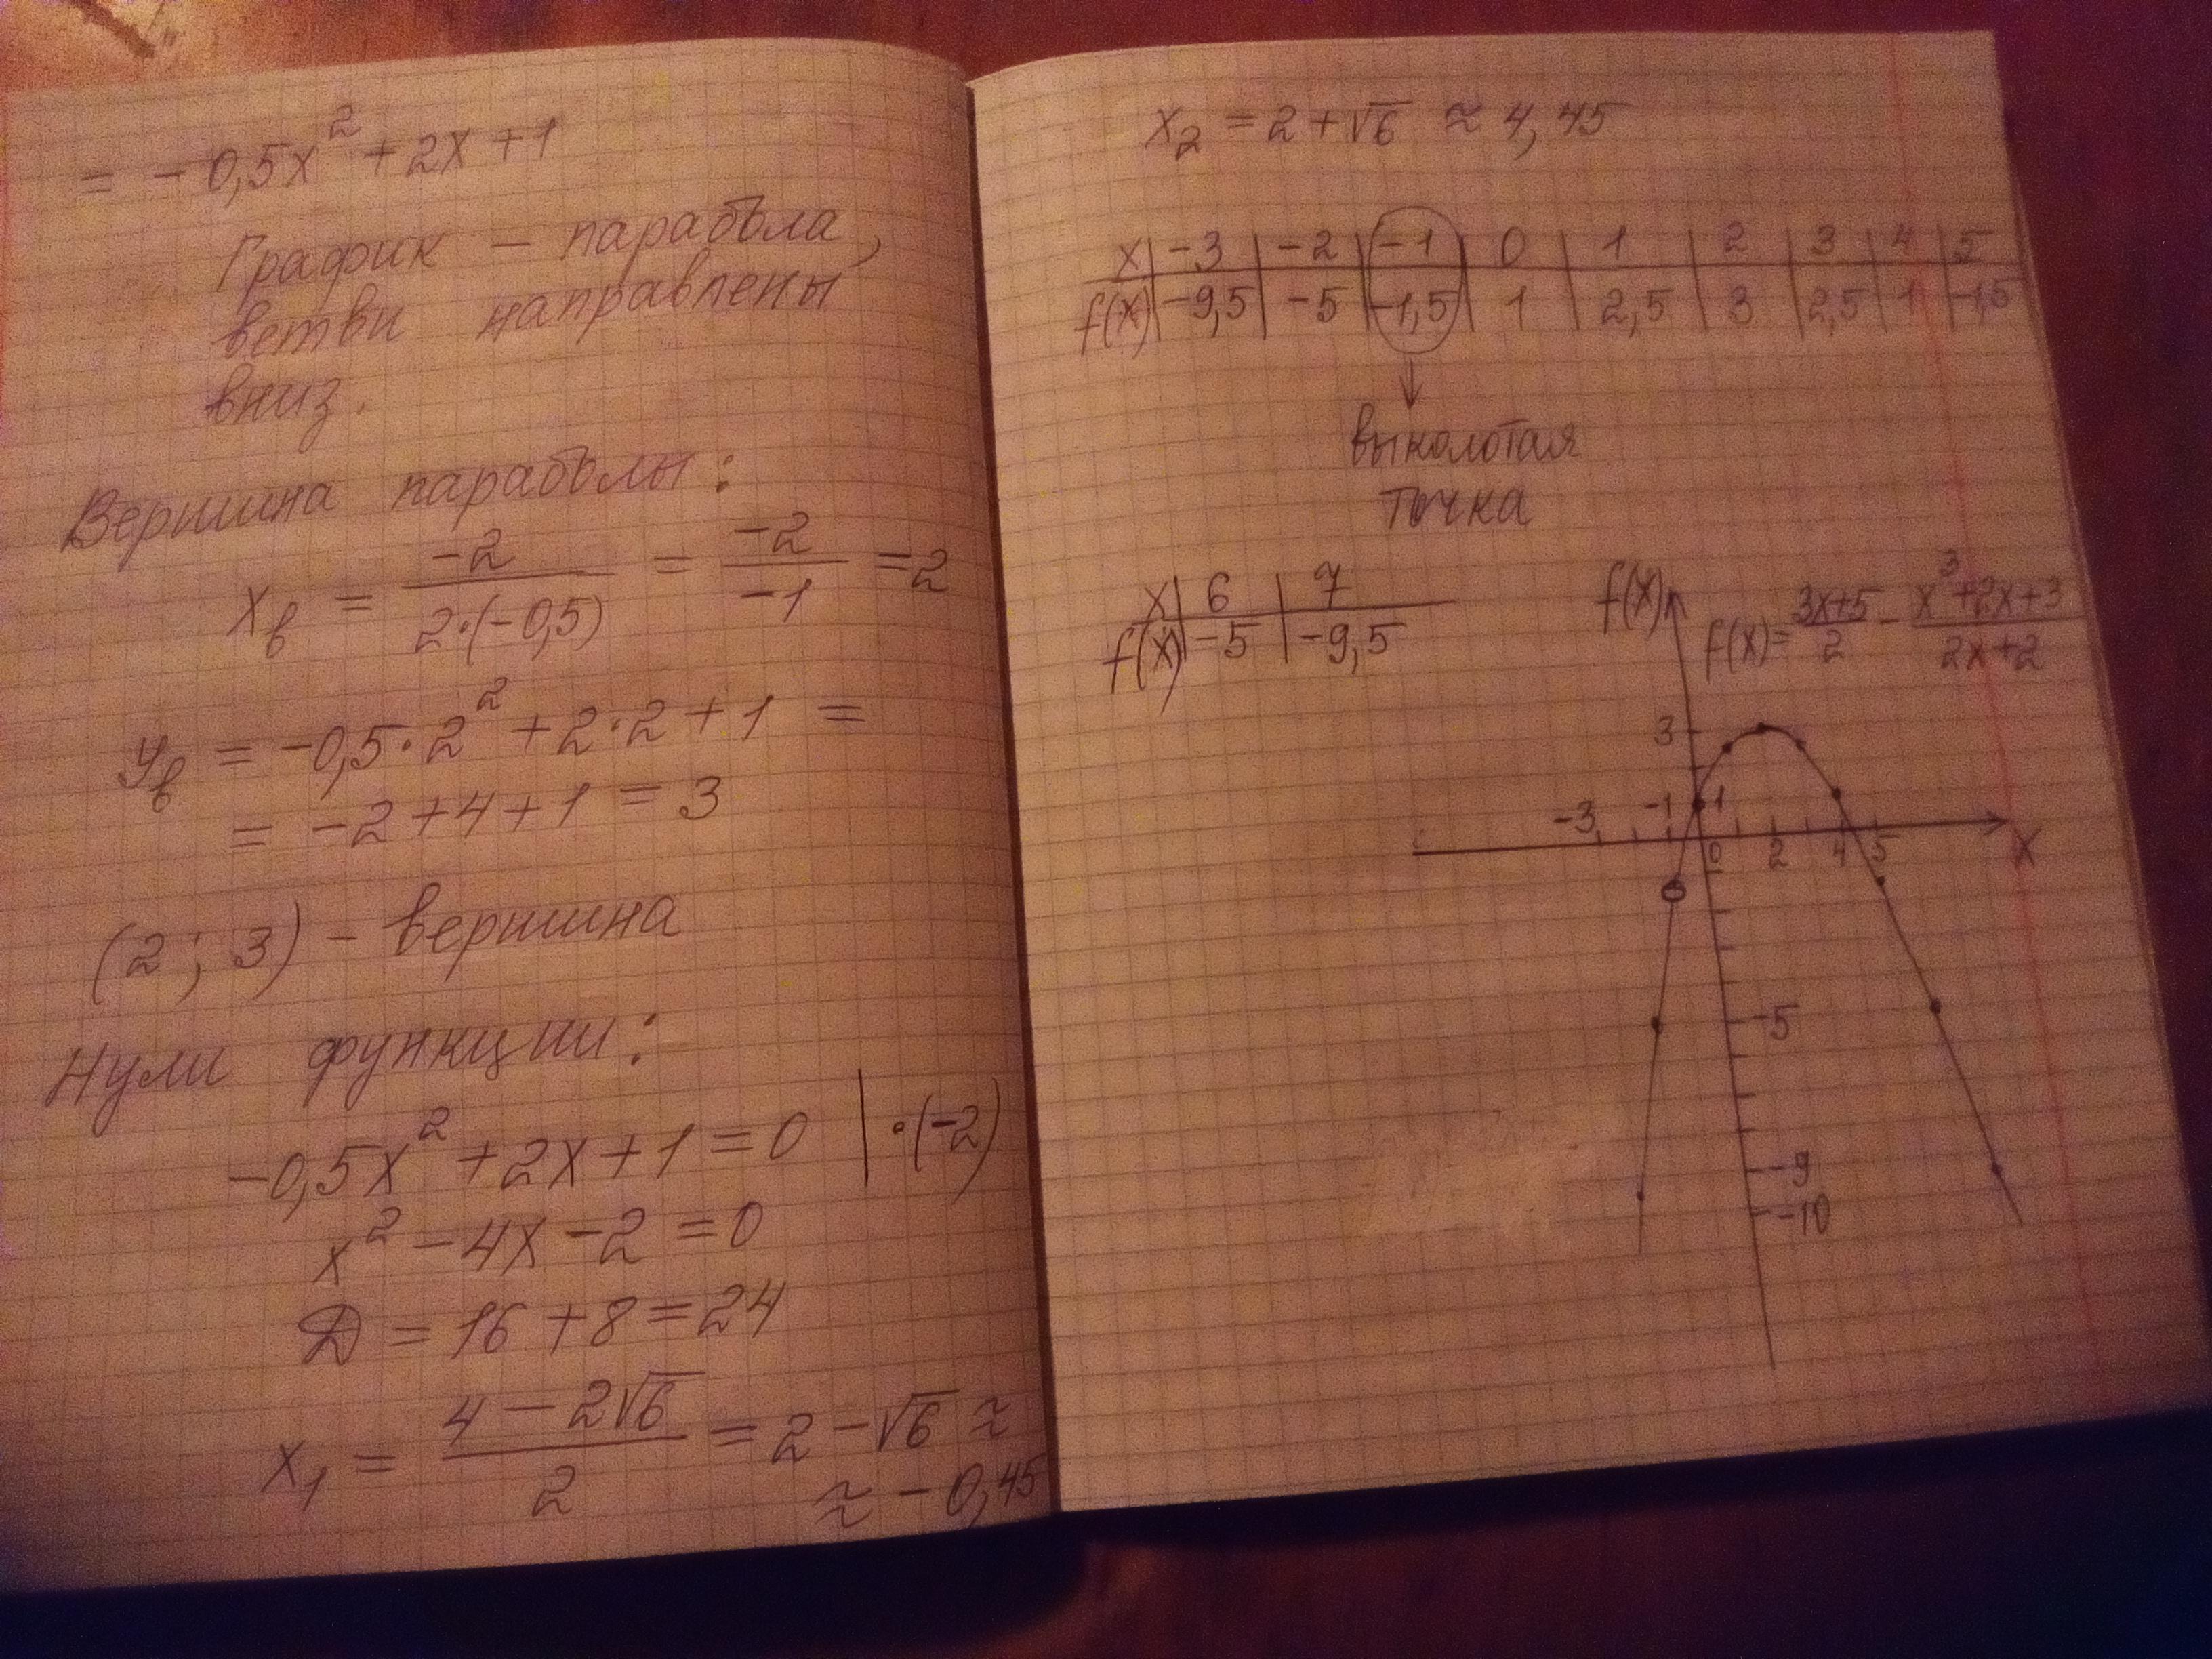 = -0,5x² + 2x + 1
График – парабола,
ветви направлены
вниз.
Вершина параболы:
xв = -2 / 2·(-0,5) = -2 / -1 = 2
yв = -0,5·2² + 2·2 + 1 =
= -2 + 4 + 1 = 3
(2; 3) – вершина
Нули функции:
-0,5x² + 2x + 1 = 0 | ·(-2)
x² - 4x - 2 = 0
Д = 16 + 8 = 24
x₁ = 4 - 2√6 / 2 = 2 - √6 ≈
≈ -0,45
x₂ = 2 + √6 ≈ 4,45
x | -3 | -2 | -1 | 0 | 1 | 2 | 3 | 4 | 5
f(x) | -9,5 | -5 | -1,5 | 1 | 2,5 | 3 | 2,5 | 1 | -1,5
выколотая
точка
x | 6 | 7
f(x) | -5 | -9,5
f(x)
f(x) = 3x+5 / 2 - x³+2x+3 / 2x+2
3
-3 -1 1
0 2 4 5 x
-5
-9
-10